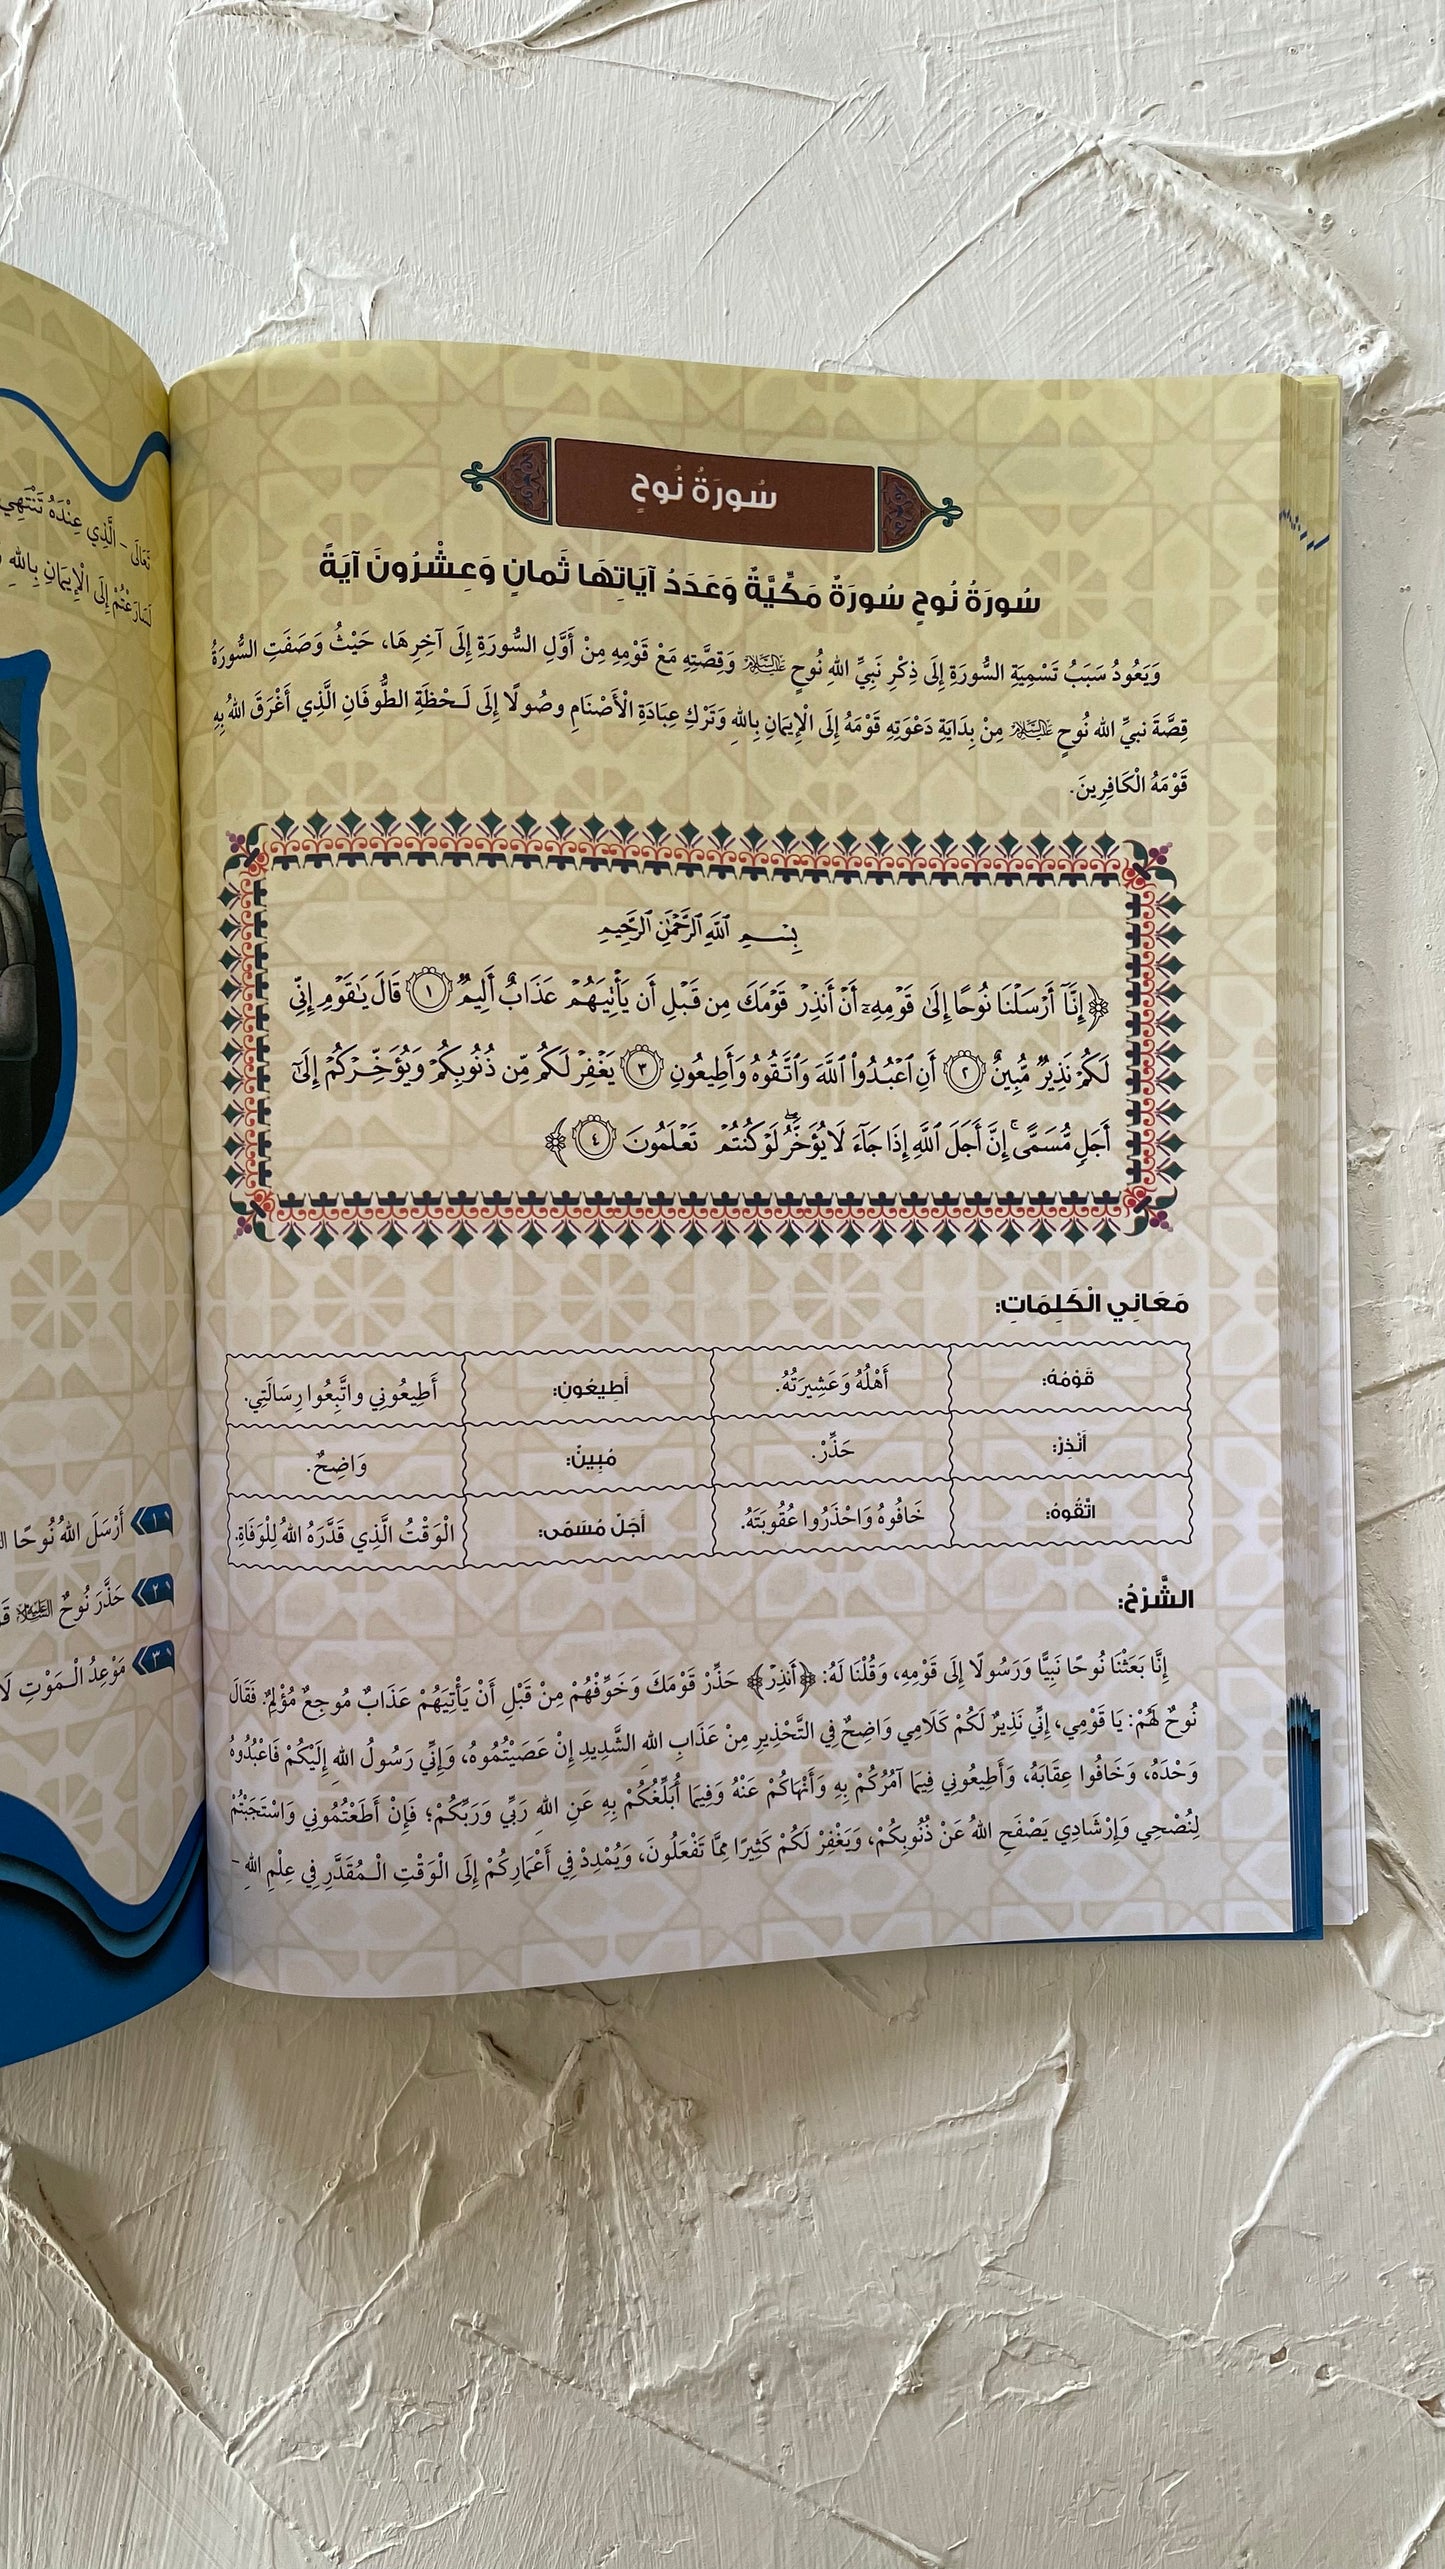 سُورَةُ نُوحٍ
سُورَةُ نُوحٍ سُورَةٌ مَكِّيَّةٌ وَعَدَدُ آيَاتِهَا ثَمانٍ وَعِشْرُونَ آيَةً
وَيَعُودُ سَبَبُ تَسْمِيَةِ السُّورَةِ إِلَى ذِكْرِ نَبِيِّ اللهِ نُوحٍ عَلَيْهِ السَّلَامُ وَقِصَّتِهِ مَعْ قَوْمِهِ مِنْ أَوَّلِ السُّورَةِ إِلَى آخِرِهَا، حَيْثُ وَصَفَتِ السُّورَةُ
قِصَّةَ نبيِّ الله نُوحٍ عَلَيْهِ السَّلَامُ مِنْ بِدَايَةِ دَعْوَتِهِ قَوْمَهُ إِلَى الْإِيمَانِ بِاللهِ وَتَرْكِ عِبَادَةِ الْأَصْنَامِ وصُولًا إِلَى لَـحْظَةِ الطُّوفَانِ الَّذِي أَغْرَقَ اللهُ بِهِ
قَوْمَهُ الْكَافِرِينَ.
بِسْمِ ٱللَّهِ ٱلرَّحْمَٰنِ ٱلرَّحِيمِ
﴿إِنَّآ أَرْسَلْنَا نُوحًا إِلَىٰ قَوْمِهِۦٓ أَنْ أَنذِرْ قَوْمَكَ مِن قَبْلِ أَن يَأْتِيَهُمْ عَذَابٌ أَلِيمٌ ١ قَالَ يَٰقَوْمِ إِنِّي
لَكُمْ نَذِيرٌ مُّبِينٌ ٢ أَنِ ٱعْبُدُوا۟ ٱللَّهَ وَٱتَّقُوهُ وَأَطِيعُونِ ٣ يَغْفِرْ لَكُم مِّن ذُنُوبِكُمْ وَيُؤَخِّرْكُمْ إِلَىٰٓ
أَجَلٍ مُّسَمًّى ۚ إِنَّ أَجَلَ ٱللَّهِ إِذَا جَآءَ لَا يُؤَخَّرُ ۖ لَوْ كُنتُمْ تَعْلَمُونَ ٤﴾
مَعَانِي الْكَلِمَاتِ:
قَوْمُهُ: أَهْلُهُ وَعَشِيرَتُهُ. أَطِيعُونِ: أَطِيعُونِي واتَّبِعُوا رِسَالَتِي.
أَنْذِرْ: حَذِّرْ. مُبِينٌ: وَاضِحٌ.
اتَّقُوهُ: خَافُوهُ وَاحْذَرُوا عُقُوبَتَهُ. أَجَلٌ مُسَمًّى: الْوَقْتُ الَّذِي قَدَّرَهُ اللهُ لِلْوَفَاةِ.
الشَّرْحُ:
إِنَّا بَعَثْنَا نُوحًا نَبِيًّا وَرَسُولًا إِلَى قَوْمِهِ، وَقُلْنَا لَهُ: ﴿أَنذِرْ﴾ حَذِّرْ قَوْمَكَ وَخَوِّفْهُمْ مِنْ قَبْلِ أَنْ يَأْتِيَهُمْ عَذَابٌ مُوجِعٌ مُؤْلِمٌ. فَقَالَ
نُوحٌ لَهُمْ: يَا قَوْمِي، إِنِّي نَذِيرٌ لَكُمْ كَلَامِي وَاضِحٌ فِي التَّحْذِيرِ مِنْ عَذَابِ اللهِ الشَّدِيدِ إِنْ عَصَيْتُمُوهُ، وَإِنِّي رَسُولُ اللهِ إِلَيْكُمْ فَاعْبُدُوهُ
وَحْدَهُ، وَخَافُوا عِقَابَهُ، وَأَطِيعُونِي فِيمَا آمُرُكُمْ بِهِ وَأَنْهَاكُمْ عَنْهُ وَفِيمَا أُبَلِّغُكُمْ بِهِ عَنِ اللهِ رَبِّي وَرَبِّكُمْ؛ فَإِنْ أَطَعْتُمُونِي وَاسْتَجَبْتُمْ
لِنُصْحِي وَإِرْشَادِي يَصْفَحِ اللهُ عَنْ ذُنُوبِكُمْ، وَيَغْفِرْ لَكُمْ كَثِيرًا مِمَّا تَفْعَلُونَ، وَيُمْدِدْ فِي أَعْمَارِكُمْ إِلَى الْوَقْتِ الْـمُقَدَّرِ فِي عِلْمِ اللهِ -
تَعَالَى - الَّذِي عِنْدَهُ تَنْتَهِي
لَسَارَعْتُمْ إِلَى الْإِيمَانِ بِاللهِ
١ أَرْسَلَ اللهُ نُوحًا
٢ حَذَّرَ نُوحٌ عَلَيْهِ السَّلَامُ
٣ مَوْعِدُ الْـمَوْتِ لَا